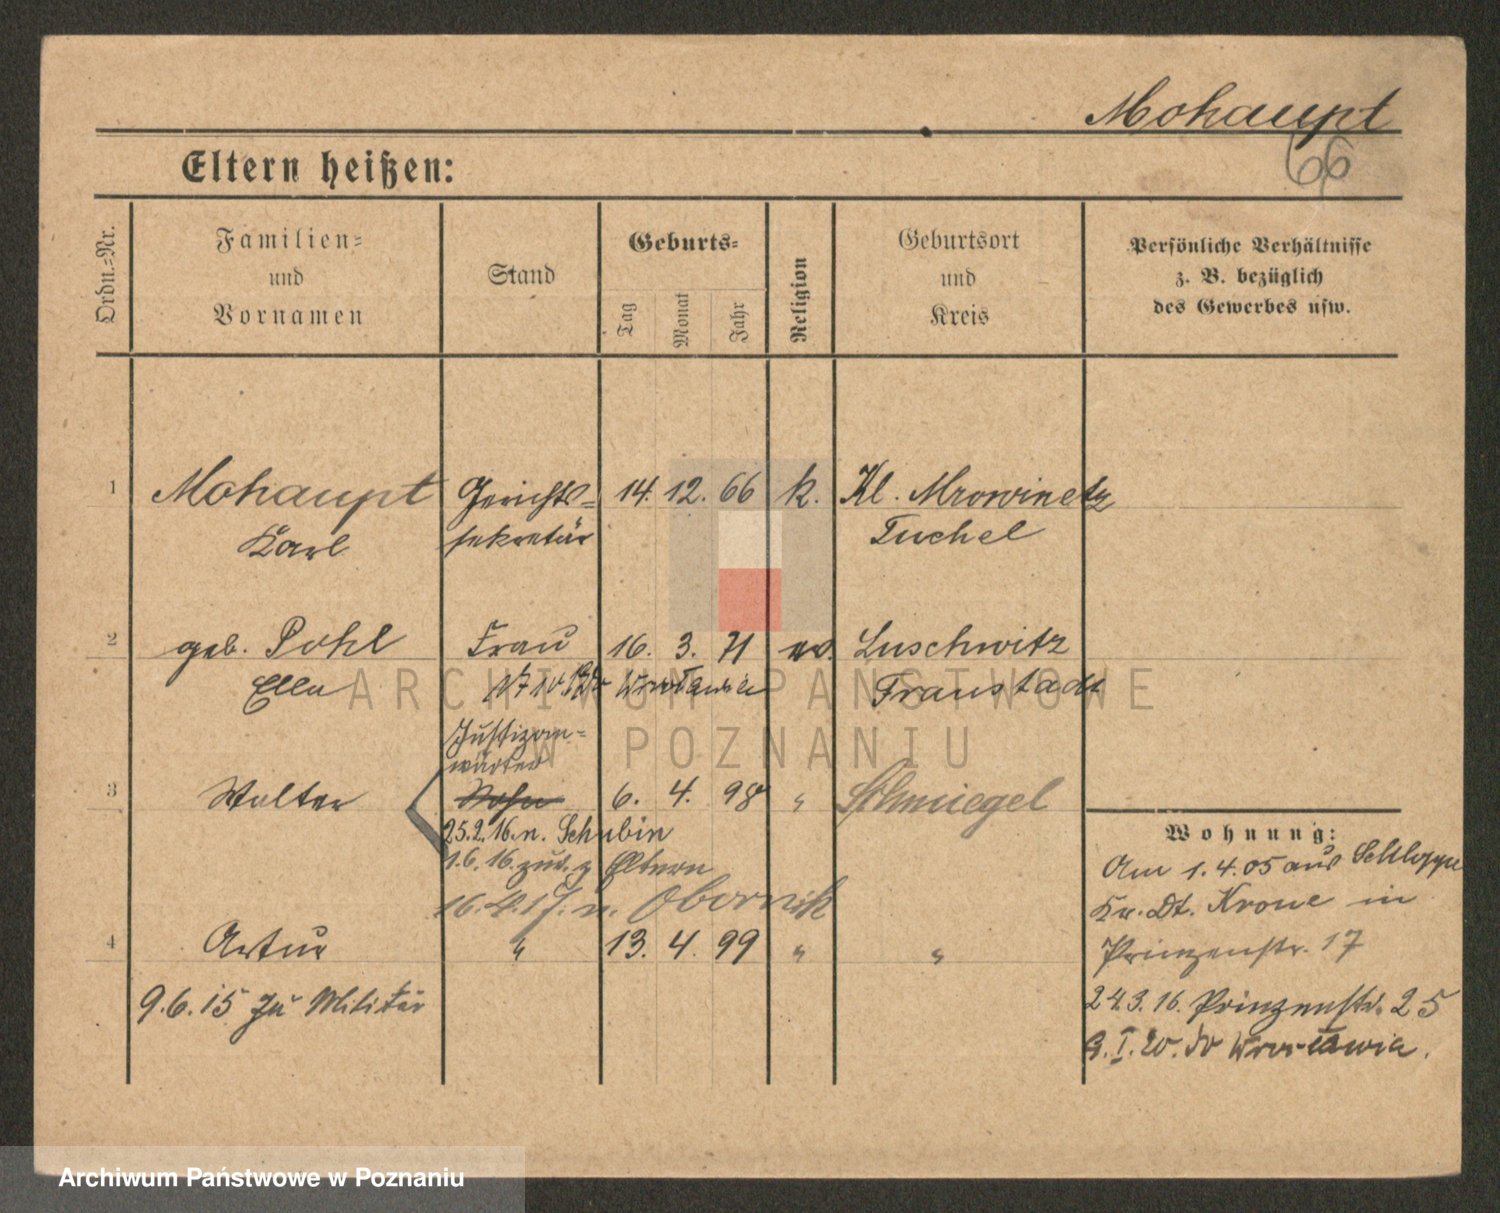 Mohaupt
66
Eltern heißen:
Ordn.-Nr.
Familien-
und
Vornamen
Stand
Geburts-
Tag
Monat
Jahr
Religion
Geburtsort
und
Kreis
Persönliche Verhältnisse
z. B. bezüglich
des Gewerbes usw.
1 Mohaupt Gerichts- 14. 12. 66 k. Kl. Mrowinetz
Karl sekretär Tuchel
2 geb. Pohl Frau 16. 3. 71 ev. Luschwitz
Ella do Wrocławia Fraustadt
ARCHIWUM PAŃSTWOWE
W POZNANIU
Justizan-
wärter
3 Walter Sohn 6. 4. 98 " Schmiegel
25.2.16. n. Schubin
1.6.16. zur. z Eltern
16.4.17. n. Obornik
4 Artur " 13. 4. 99 " "
9.6.15 zu Militär
Wohnung:
Am 1.4.05 aus Schloppe
Kr. Dt. Krone in
Prinzenstr. 17
24.3.16. Prinzenstr. 25
I. 20. do Wrocławia.
Archiwum Państwowe w Poznaniu